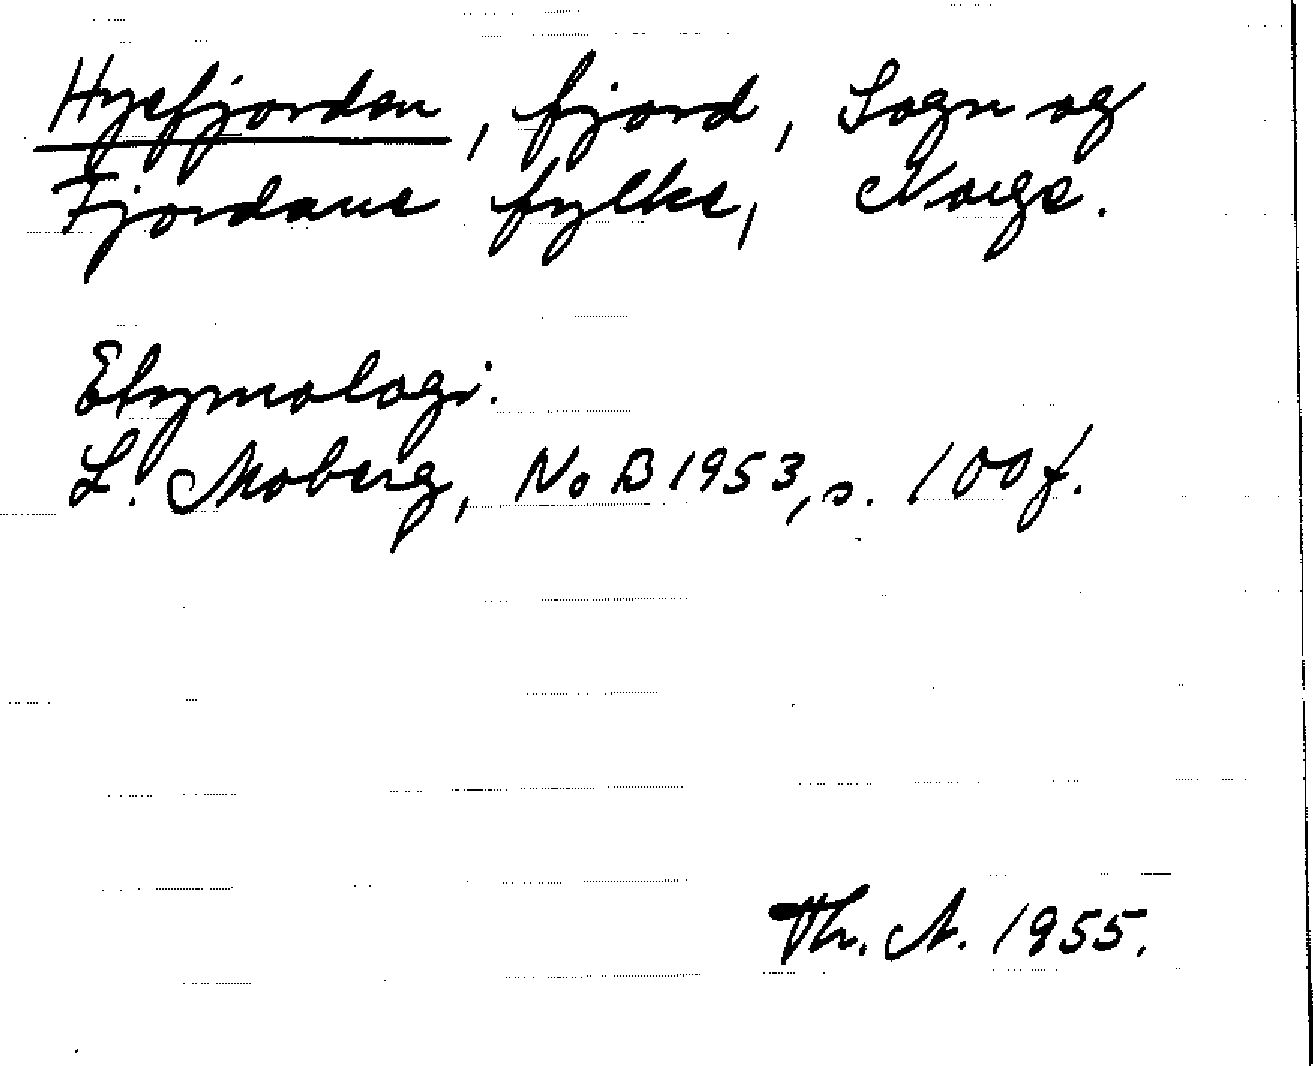 Hyefjorden, fjord, Sogn og
Fjordane fylke, Norge.
Etymologi.
L. Moberg, NoB 1953, s. 100 f.
Th. A. 1955.